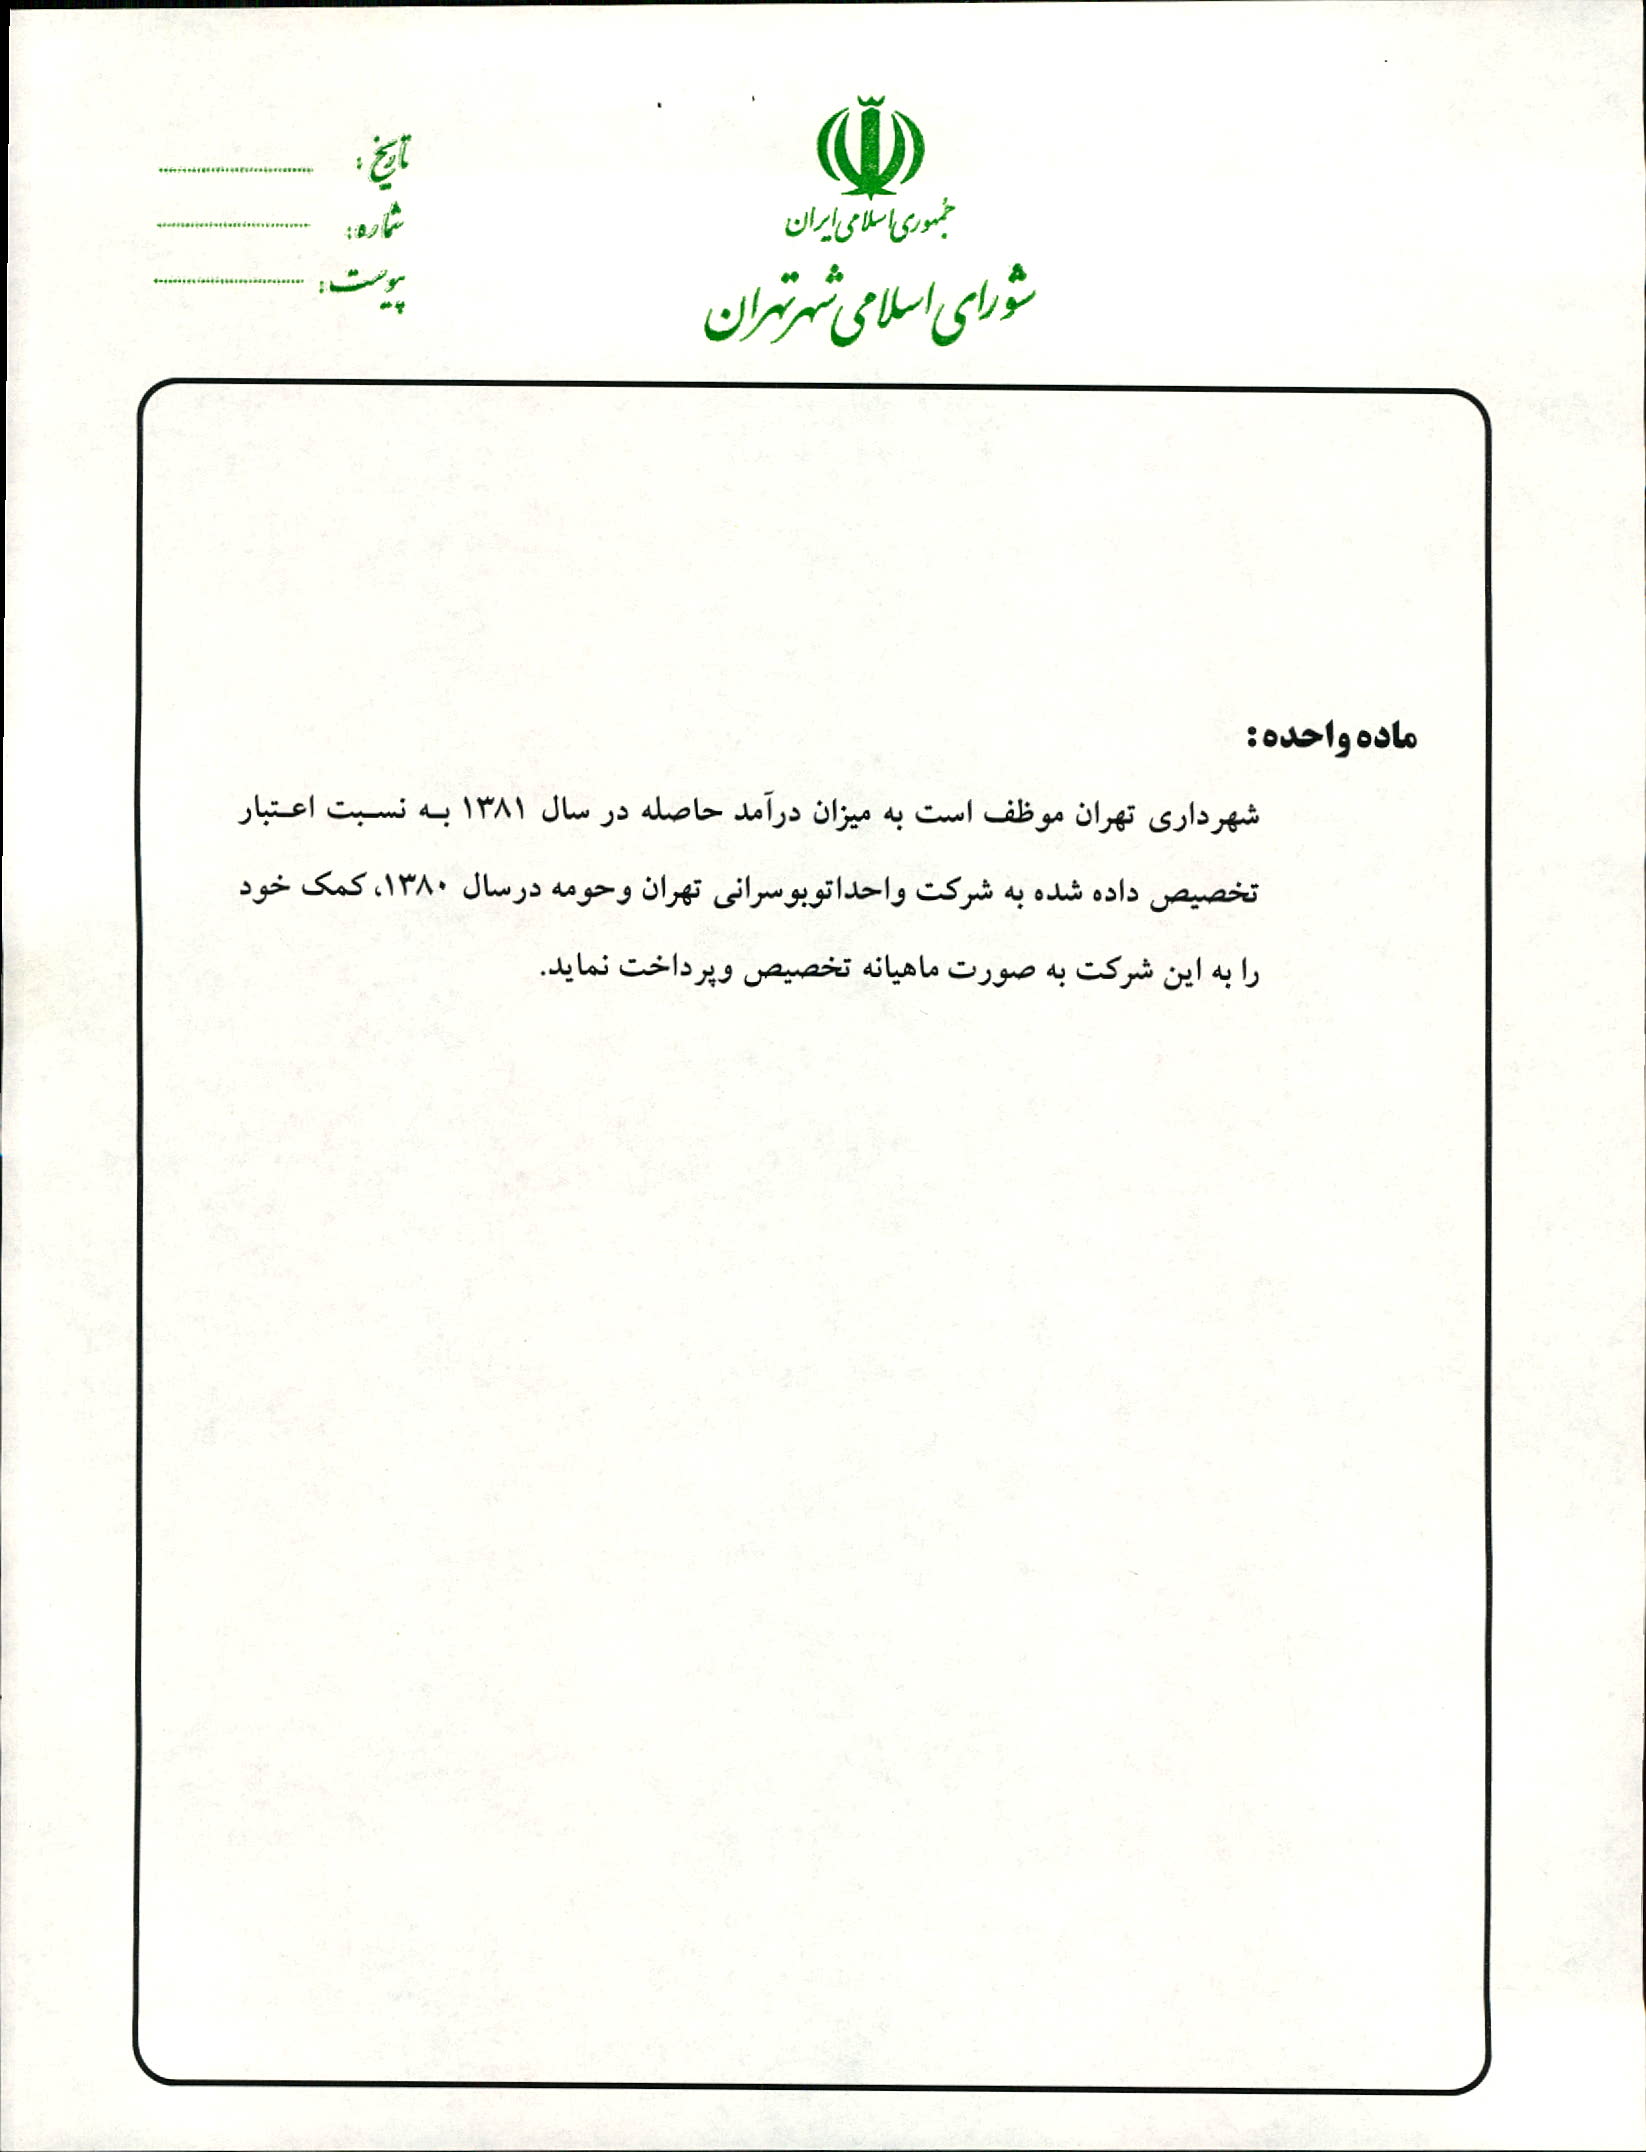 جمهوری اسلامی ایران
شورای اسلامی شهر تهران
تاریخ:
شماره:
پیوست:
ماده واحده:
شهرداری تهران موظف است به میزان درآمد حاصله در سال ۱۳۸۱ به نسبت اعتبار
تخصیص داده شده به شرکت واحداتوبوسرانی تهران وحومه درسال ۱۳۸۰، کمک خود
را به این شرکت به صورت ماهیانه تخصیص وپرداخت نماید.